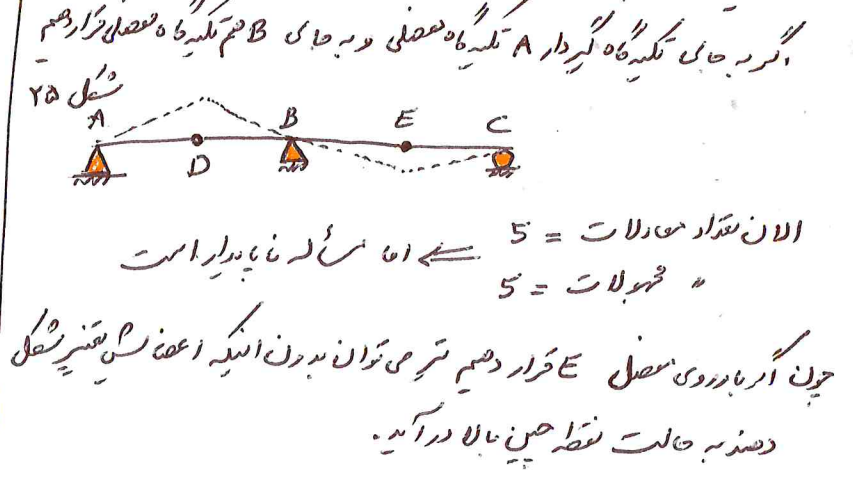 اگر به جای تکیه گاه گیردار A تکیه گاه مفصلی و به جای B هم تکیه گاه مفصلی قرار دهیم
شکل ۲۵
A B E C
D
الان تعداد معادلات = 5
" مجهولات = 5 ⇐ اما مسأله ناپایدار است
چون اگر بار روی مفصل E قرار دهیم تیر می توان بدون اینکه اعضایش تغییر شکل
دهند به حالت نقطه چین بالا در آید.